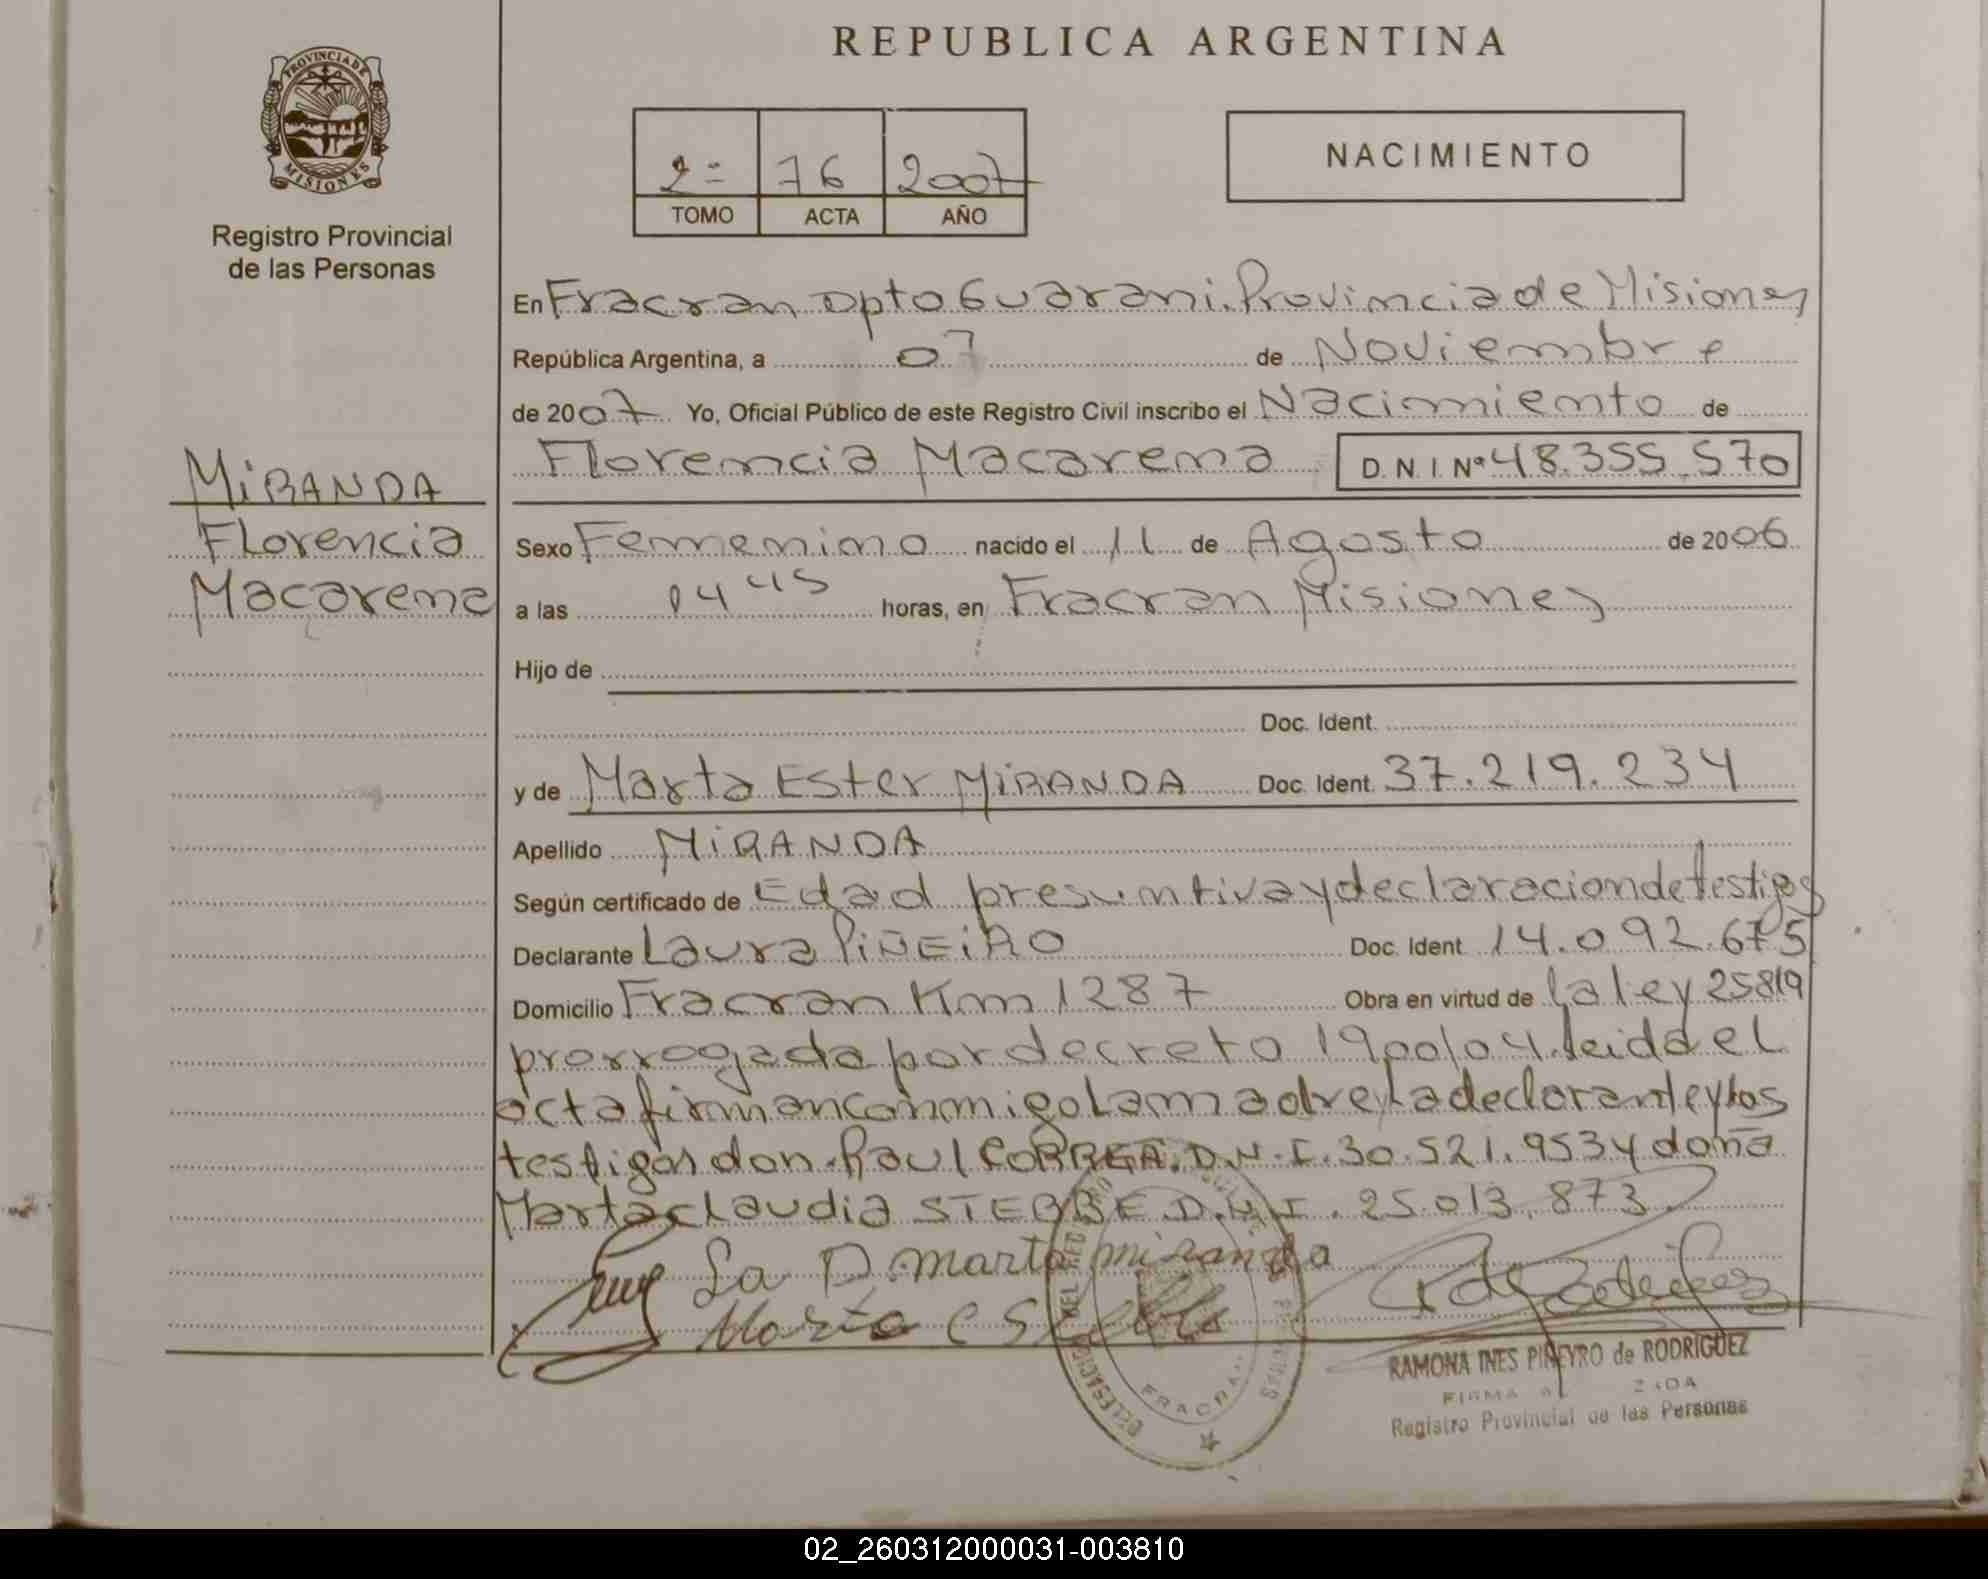 REPUBLICA ARGENTINA
PROVINCIA DE MISIONES
Registro Provincial
de las Personas
2= 76 2007
TOMO ACTA AÑO
NACIMIENTO
En Fracran Dpto Guarani. Provincia de Misiones
República Argentina, a 07 de Noviembre
de 2007 Yo, Oficial Público de este Registro Civil inscribo el Nacimiento de
Florencia Macarena D.N.I. Nº 48.355.570
MiRANDA
Florencia
Macarena
Sexo Femenino nacido el 11 de Agosto de 2006
a las 04 45 horas, en Fracran Misiones
Hijo de
Doc. Ident.
y de Marta Ester MiRANDA Doc. Ident. 37.219.234
Apellido MiRANDA
Según certificado de Edad presuntiva y declaracion de testigos
Declarante Laura PiÑEiRO Doc. Ident 14.092.675
Domicilio Fracran Km 1287 Obra en virtud de la ley 25819
prorrogada por decreto 1900/04. leida el
acta firman conmigo la madre, la declarante y los
testigos don Raul CORREA. D.N.I. 30.521.953 y doña
Marta claudia STEBBE D.N.I. 25.013.873
La D. marta miranda
Maria C S
DELEGACION DEL
FRACRAN
RAMONA INES PIÑEYRO de RODRIGUEZ
FIRMA
Registro Provincial de las Personas
02_260312000031-003810